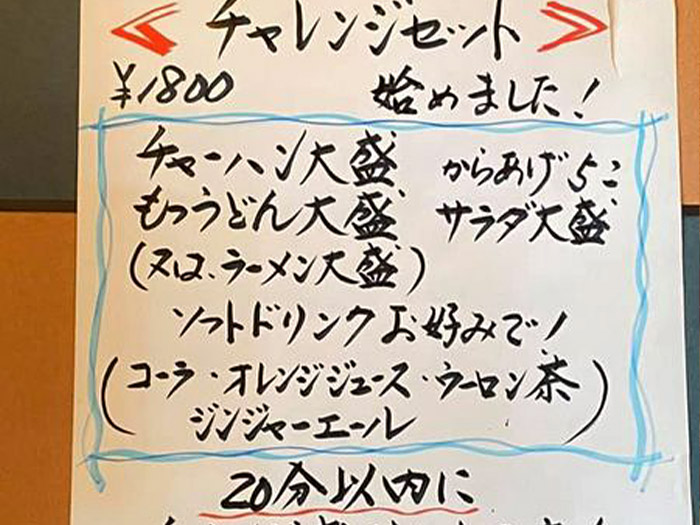 ≪ チャレンジセット ≫
¥1800 始めました!
チャーハン大盛 からあげ5こ
もつうどん大盛 サラダ大盛
(又は、ラーメン大盛)
ソフトドリンクお好みで!
(コーラ・オレンジジュース・ウーロン茶
ジンジャーエール)
20分以内に